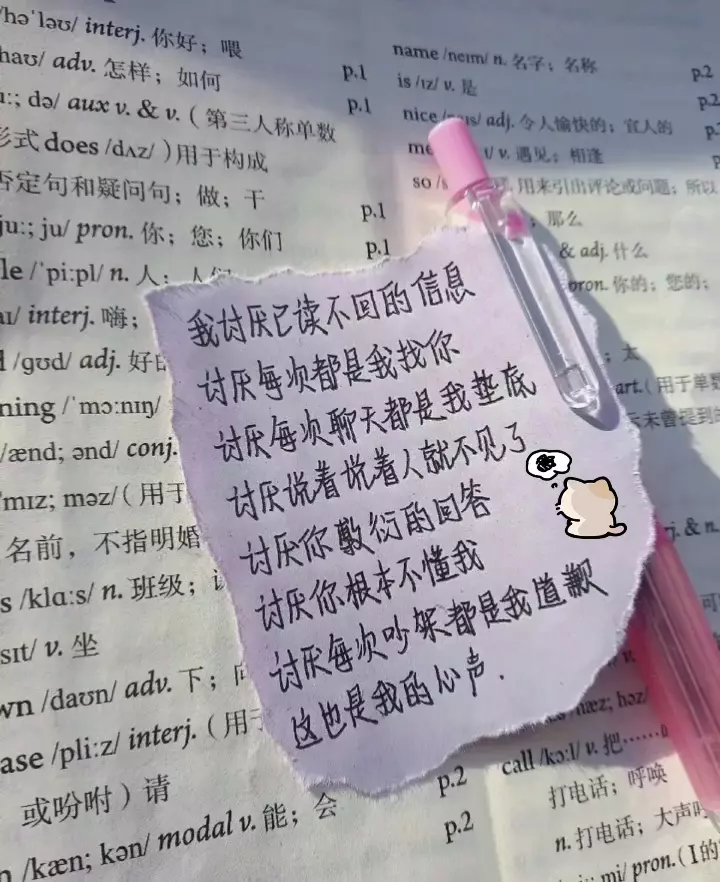 /hə'ləʊ/ interj. 你好；喂
haʊ/ adv. 怎样；如何
p.1
uː; də/ aux v. & v.（第三人称单数
p.1
形式 does /dʌz/ )用于构成
否定句和疑问句；做；干
p.1
juː; ju/ pron. 你；您；你们
p.1
le /'piːpl/ n. 人；人们
aɪ/ interj. 嗨；
d /ɡʊd/ adj. 好的
ning /'mɔːnɪŋ/
/ænd; ənd/ conj.
'mɪz; məz/（用于
名前，不指明婚
s /klɑːs/ n. 班级；
sɪt/ v. 坐
wn /daʊn/ adv. 下；向
ase /pliːz/ interj.（用
或吩咐）请
p.2
n /kæn; kən/ modal v. 能；会
p.2
name /neɪm/ n. 名字；名称
p.2
is /ɪz/ v. 是
p.2
nice adj. 令人愉快的；宜人的
me v. 遇见；相逢
so 用来引出评论或问题；所以
那么
& adj. 什么
pron. 你的；您的；
；太
art.（用于单数
未曾提到
我讨厌已读不回的信息
讨厌每次都是我找你
讨厌每次聊天都是我垫底
讨厌说着说着人就不见了
讨厌你敷衍的回答
讨厌你根本不懂我
讨厌每次吵架都是我道歉
这也是我的心声.
j. & n.
næz; həz/
call /kɔːl/ v. 把……
打电话；呼唤
n. 打电话；大声
mi/ pron.（I的